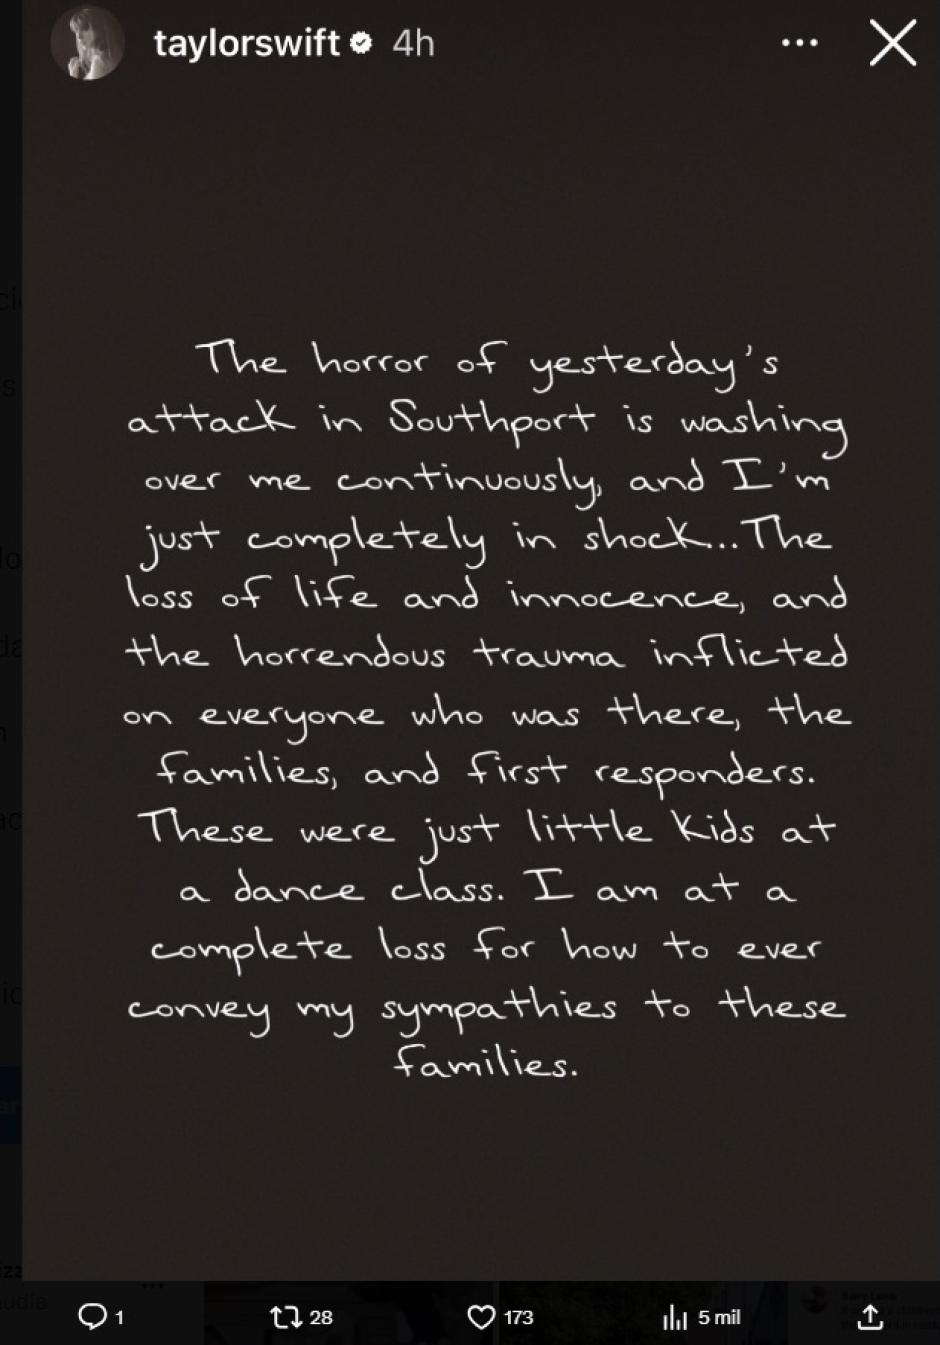 taylorswift 4h
The horror of yesterday's
attack in Southport is washing
over me continuously, and I'm
just completely in shock...The
loss of life and innocence, and
the horrendous trauma inflicted
on everyone who was there, the
families, and first responders.
These were just little kids at
a dance class. I am at a
complete loss for how to ever
convey my sympathies to these
families.
1 28 173 5 mil